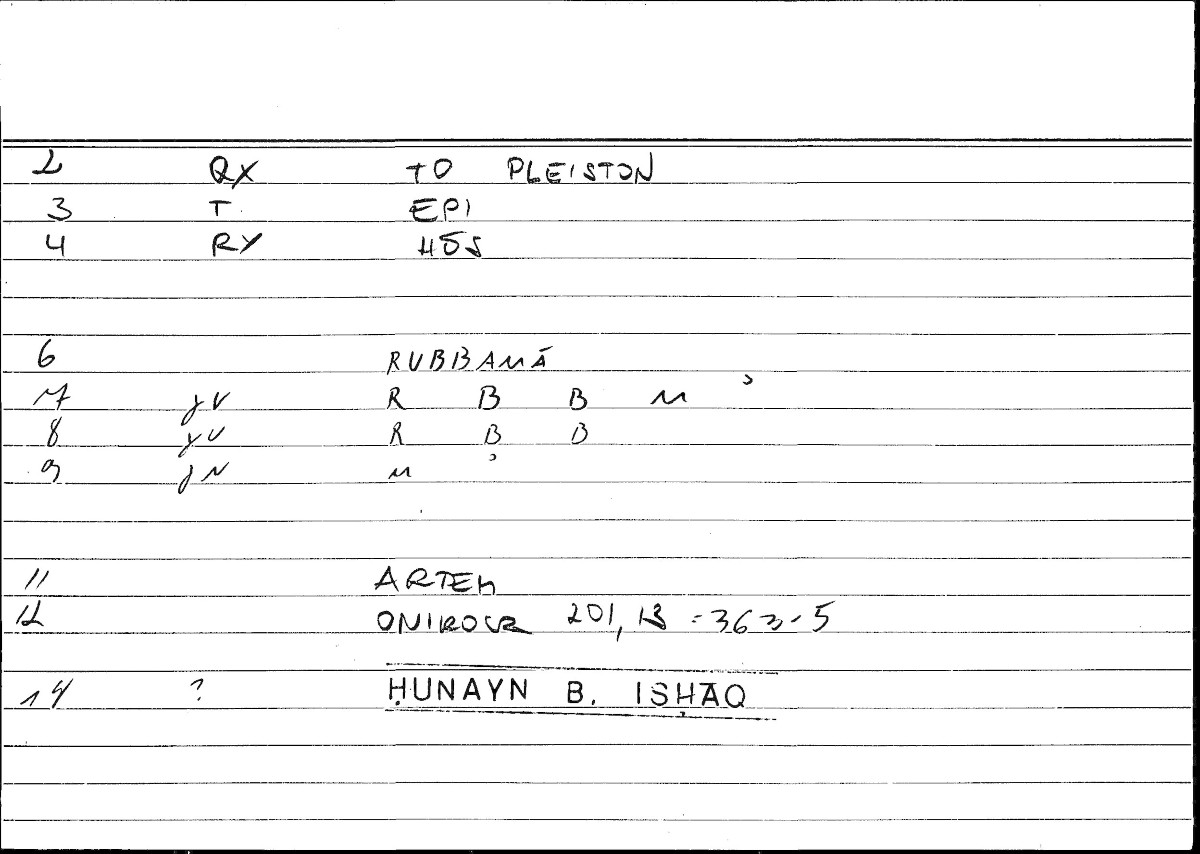 2 QX TO PLEISTON
3 T EPI
4 RY HŌS
6 RUBBAMĀ
7 yV R B B M ʾ
8 yV R B B
9 yN M ʾ
11 ARTEM
12 ONIROCR 201,13 = 363-5
14 ? ḤUNAYN B. ISḤĀQ